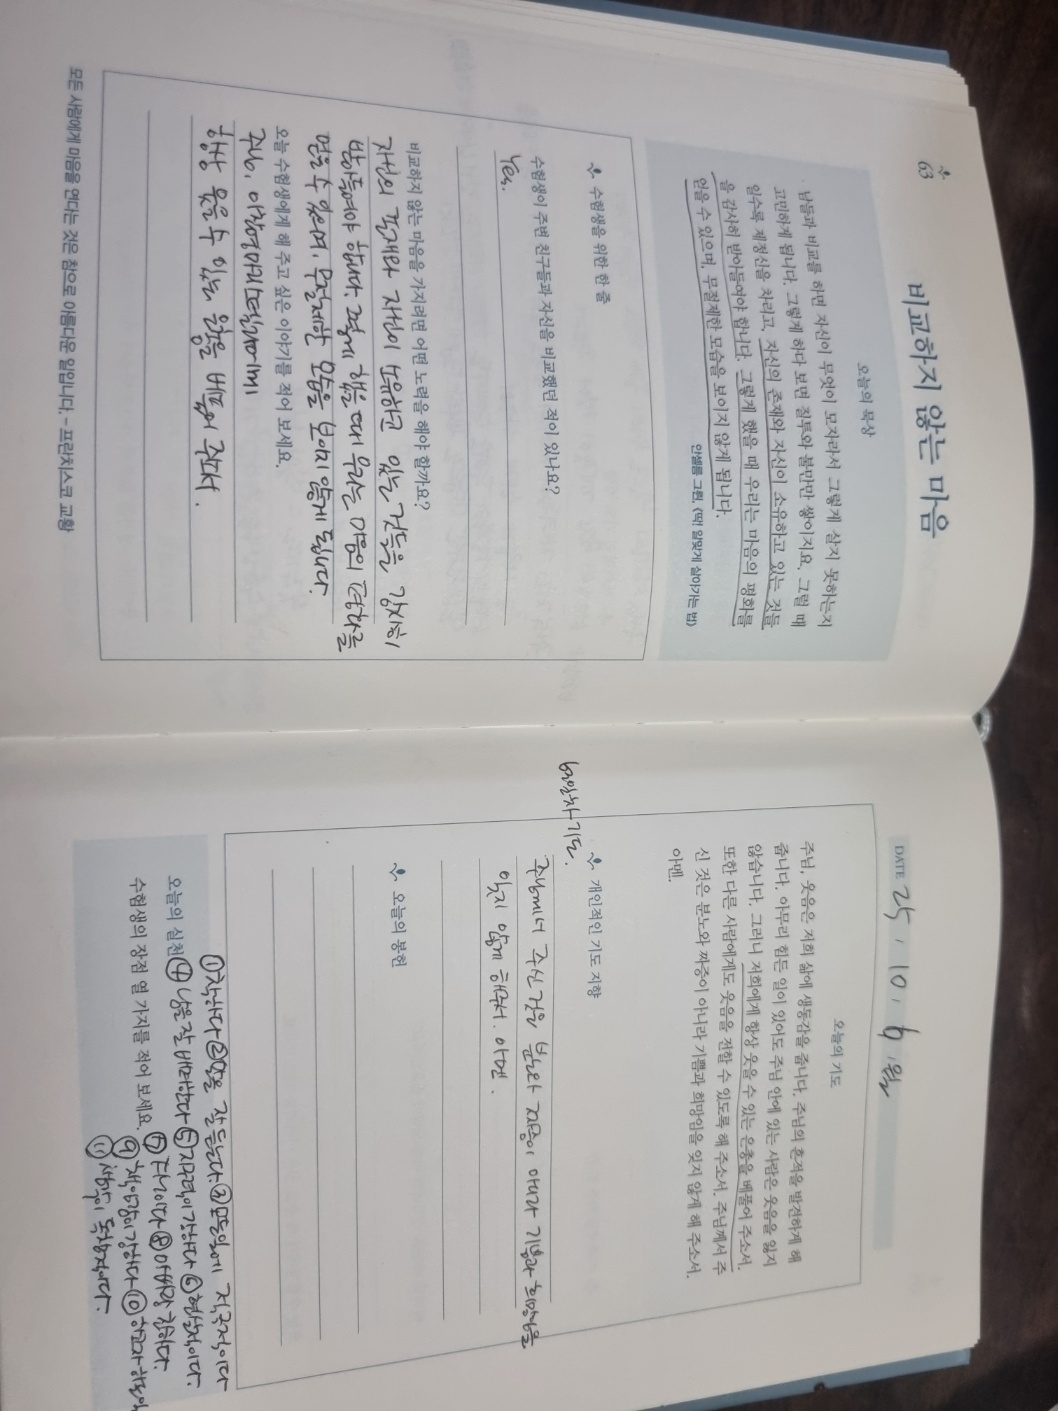 63
비교하지 않는 마음
오늘의 묵상
남들과 비교를 하면 자신이 무엇이 모자라서 그렇게 살지 못하는지
고민하게 됩니다. 그렇게 하다 보면 질투와 불만만 쌓이지요. 그럴 때
일수록 제정신을 차리고, 자신의 존재와 자신이 소유하고 있는 것들
을 감사히 받아들여야 합니다. 그렇게 했을 때 우리는 마음의 평화를
얻을 수 있으며, 무절제한 모습을 보이지 않게 됩니다.
안셀름 그륀, 《딱! 알맞게 살아가는 법》
수험생을 위한 한 줄
수험생이 주변 친구들과 자신을 비교했던 적이 있나요?
Yes.
비교하지 않는 마음을 가지려면 어떤 노력을 해야 할까요?
자신의 존재와 자신이 소유하고 있는 것들을 감사히
받아들여야 합니다. 그렇게 했을 때 우리는 마음의 평화를
얻을 수 있으며, 무절제한 모습을 보이지 않게 됩니다.
오늘 수험생에게 해 주고 싶은 이야기를 적어 보세요.
주님,
항상 웃을 수 있는 은총을 베풀어 주소서.
모든 사람에게 마음을 연다는 것은 참으로 아름다운 일입니다. - 프란치스코 교황
DATE 25. 10. 6. 월
오늘의 기도
주님, 웃음은 저희 삶에 생동감을 줍니다. 주님의 흔적을 발견하게 해
줍니다. 아무리 힘든 일이 있어도 주님 안에 있는 사람은 웃음을 잃지
않습니다. 그러니 저희에게 항상 웃을 수 있는 은총을 베풀어 주소서.
또한 다른 사람에게도 웃음을 전할 수 있도록 해 주소서. 주님께서 주
신 것은 분노와 짜증이 아니라 기쁨과 희망임을 잊지 않게 해 주소서.
아멘.
개인적인 기도 지향
주님께서 주신 것은 분노와 짜증이 아니라 기쁨과 희망임을
잊지 않게 해주소서. 아멘.
오늘의 봉헌
오늘의 실천
수험생의 장점 열 가지를 적어 보세요.
① 착하다 ② 말을 잘 듣는다. ③ 모든일에 적극적이다
④ 남을 잘 배려한다 ⑤ 지구력이 강하다 ⑥ 현실적이다.
⑧
⑨ 책임감이 강하다 ⑩
⑪